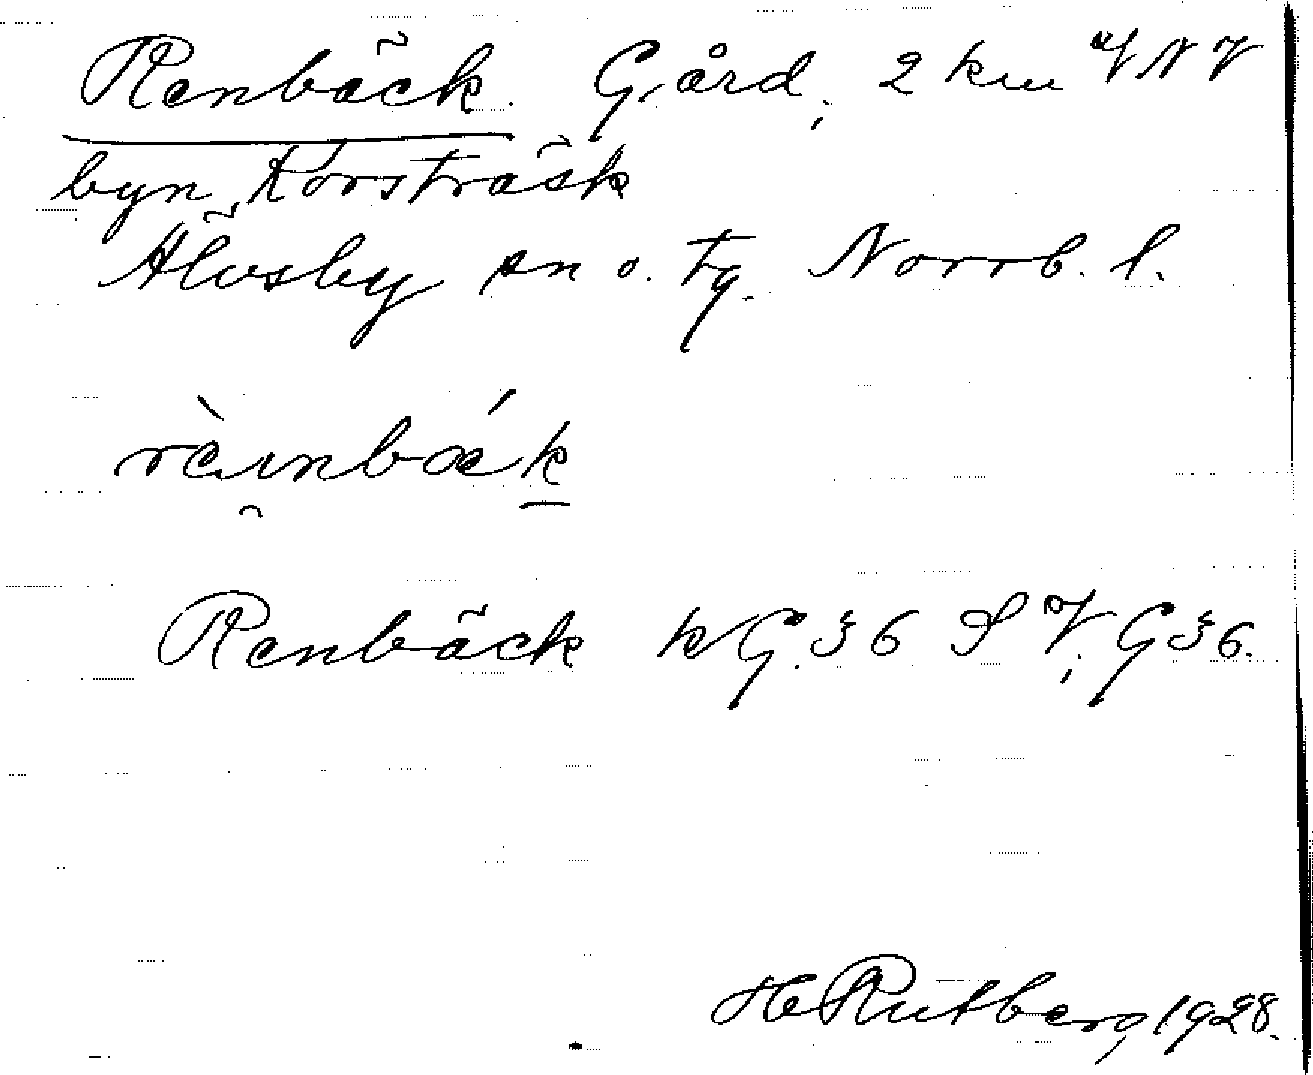 Renbäck. Gård, 2 km VNV
byn Korsträsk
Älvsby sn o. tg. Norrb. l.
rèi̯nbák
Renbäck kG.36 SV; G36.
H Rutberg 1928.